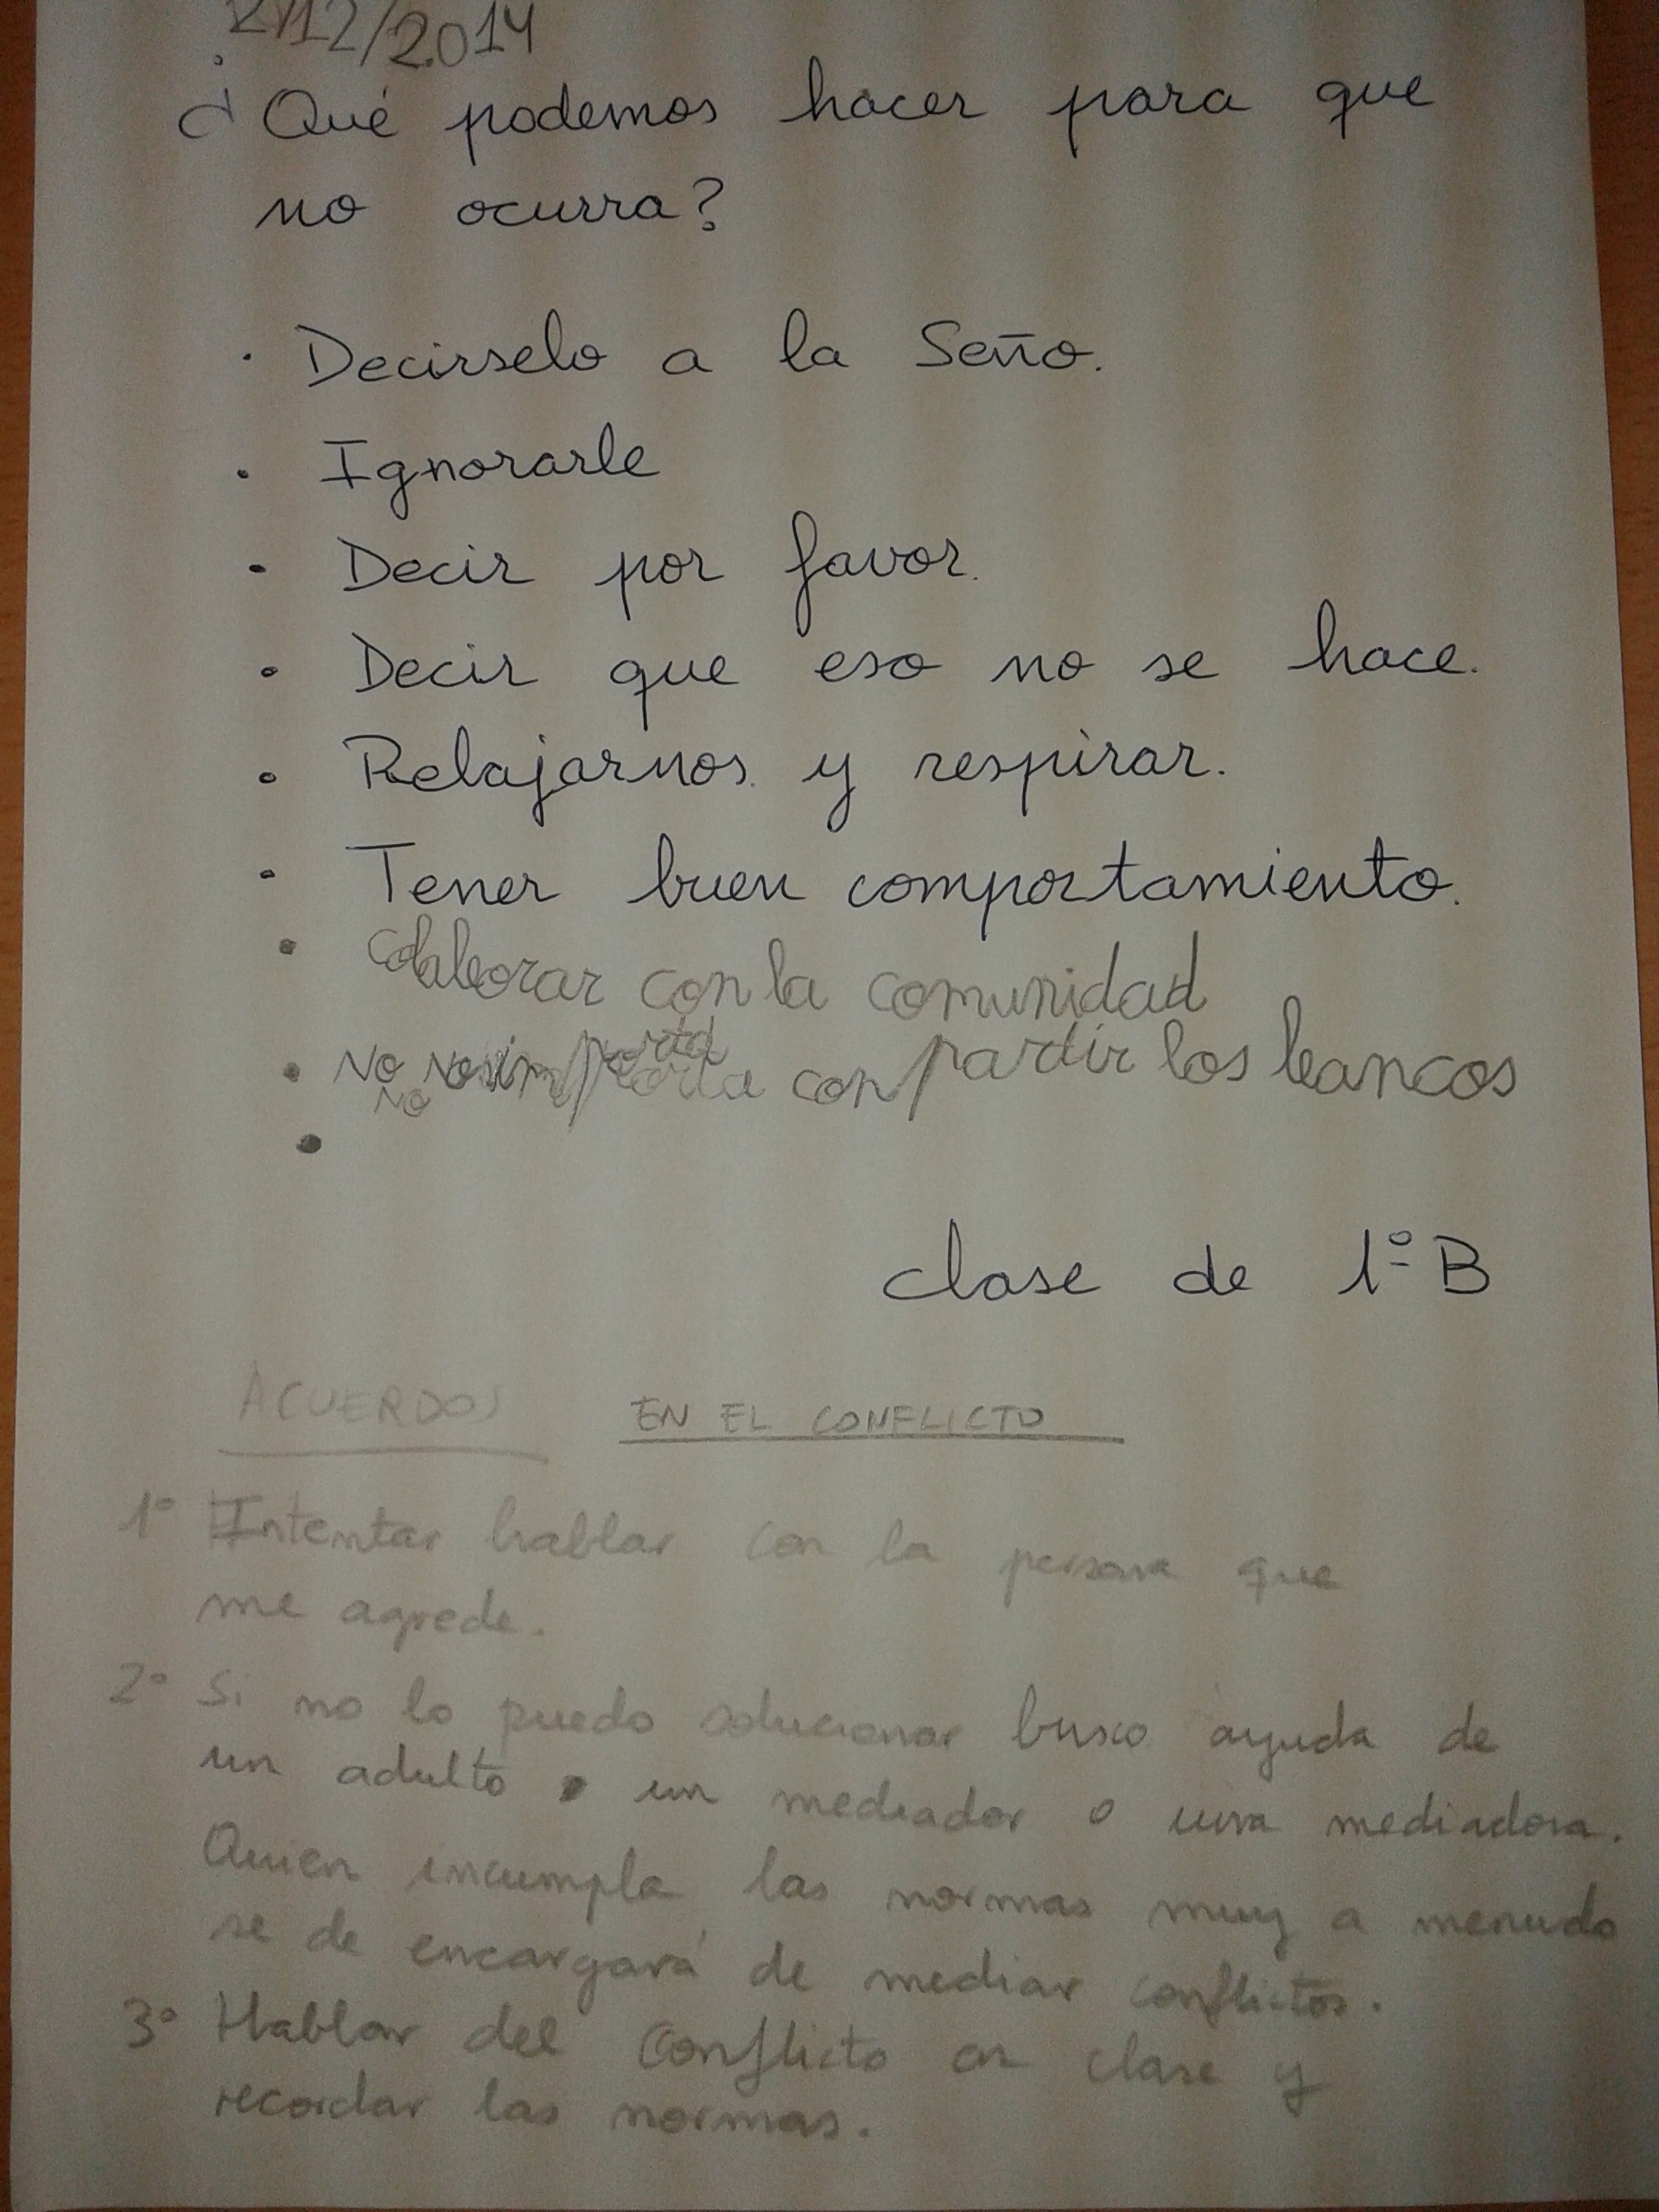 2/12/2014
¿Qué podemos hacer para que
no ocurra?
· Decirselo a la Seño.
· Ignorarle
· Decir por favor.
· Decir que eso no se hace.
· Relajarnos y respirar.
· Tener buen comportamiento.
· Colaborar con la comunidad
· No nos importa conpartir los bancos
·
clase de 1º B
ACUERDOS EN EL CONFLICTO
1º Intentar hablar con la persona que
me agrede.
2º Si no lo puedo solucionar busco ayuda de
un adulto un mediador o una mediadora.
Quien incumpla las normas muy a menudo
se de encargará de mediar conflictos.
3º Hablar del conflicto en clase y
recordar las normas.